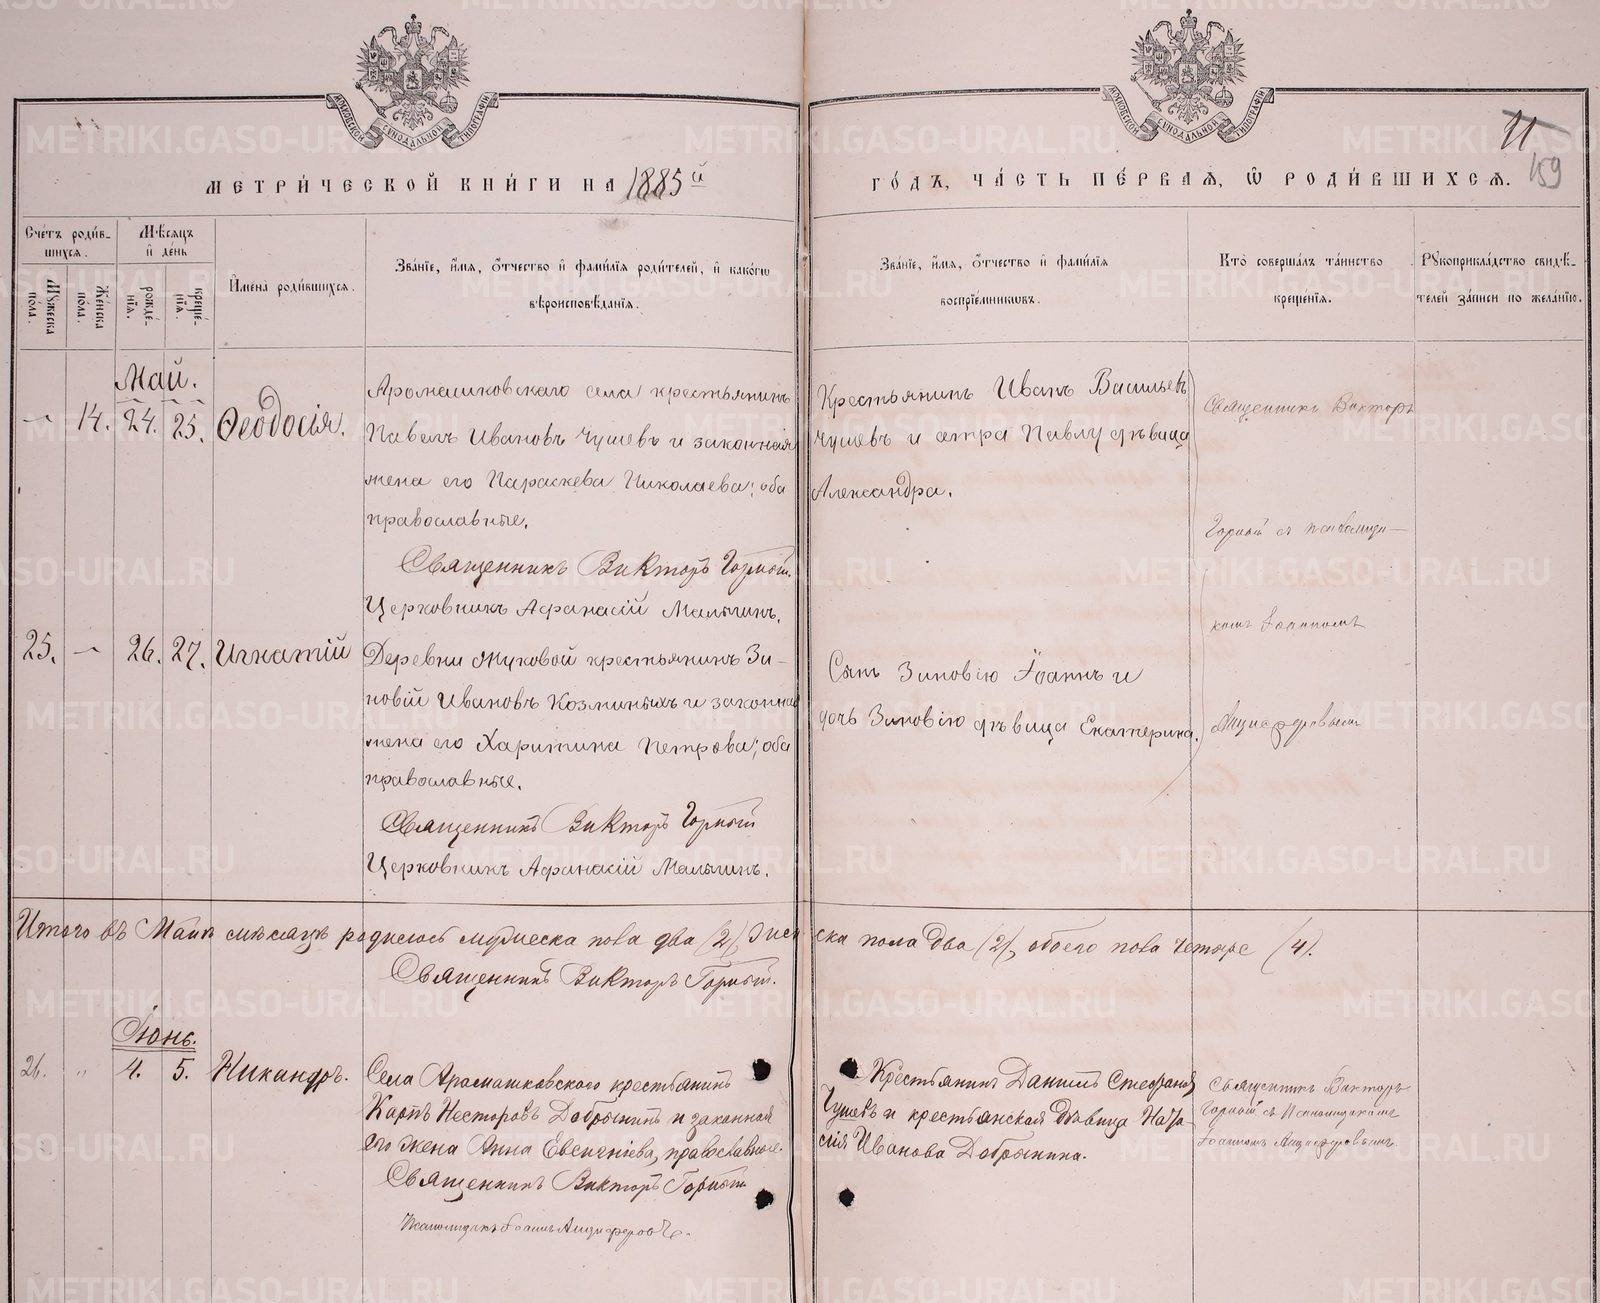 МЕТРИ́ЧЕСКОЙ КНИ́ГИ НА 1885 й
ГО́ДЪ, ЧА́СТЬ ПЕ́РВАЯ, Ѡ РОДИ́ВШИХСЯ.
11
159
Сче́тъ роди́в-
шихся.
Му́жеска
по́ла.
Же́нска
по́ла.
Мѣ́сяцъ
и де́нь
рожде́-
нїя.
креще́-
нїя.
И́мена роди́вшихся.
Зва́нїе, и́мя, ѻ́тчество и фами́лїя роди́телей, и како́гѡ
вѣроисповѣ́данїя.
Зва́нїе, и́мя, ѻ́тчество и фами́лїя
воспрїе́мниковъ.
Кто̀ соверша́лъ та́инство
креще́нїя.
Рꙋкоприкла́дство свидѣ́-
телей за́писи по жела́нїю.
Май.
14. 24. 25. Ѳеодосія.
Аромашковскаго села крестьянинъ
Павелъ Ивановъ Чушевъ и законная
жена его Параскева Николаева; оба
православные.
Священникъ Викторъ Горный.
Церковникъ Афанасій Малыгинъ.
Крестьянинъ Иванъ Васильевъ
Чушевъ и сестра Павлу дѣвица
Александра.
Священникъ Викторъ
Горный съ псаломщи-
комъ Іоанномъ
Анциферовымъ
25. — 26. 27. Игнатій
Деревни Жуковой крестьянинъ Зи-
новій Ивановъ Козминыхъ и законная
жена его Харитина Петрова; оба
православные.
Священникъ Викторъ Горный
Церковникъ Афанасій Малыгинъ.
Сынъ Зиновію Іоаннъ и
дочь Зиновію дѣвица Екатерина.
Итого въ Маѣ мѣсяцѣ родилось мужеска пола два (2), женска пола два (2), обоего пола четыре (4).
Священникъ Викторъ Горный.
Іюнь.
26. " 4. 5. Никандръ.
Села Аромашковского крестьянинъ
Карпъ Несторовъ Добрынинъ и законная
его жена Анна Евсигніева, православные.
Священникъ Викторъ Горный
Псаломщикъ Іоаннъ Анциферовъ.
Крестьянинъ Даніилъ Стефановъ
Чушевъ и крестьянская дѣвица Ната-
лія Иванова Добрынина.
Священникъ Викторъ
Горный съ Псаломщикомъ
Іоанномъ Анциферовымъ.
METRIKI.GASO-URAL.RU